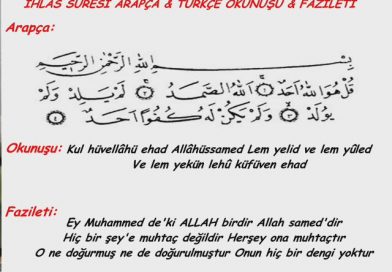 IHLAS SURESİ ARAPÇA & TÜRKÇE OKUNUŞU & FAZİLETİ
Arapça:
بِسْمِ اللّٰهِ الرَّحْمٰنِ الرَّحِيمِ
قُلْ هُوَ اللّٰهُ اَحَدٌ ﴿١﴾ اَللّٰهُ الصَّمَدُ ﴿٢﴾ لَمْ يَلِدْ وَلَمْ
يُولَدْ ﴿٣﴾ وَلَمْ يَكُنْ لَهُ كُفُوًا اَحَدٌ ﴿٤﴾
Okunuşu: Kul hüvellâhü ehad Allâhüssamed Lem yelid ve lem yûled
Ve lem yekün lehû küfüven ehad
Fazileti:
Ey Muhammed de'ki ALLAH birdir Allah samed'dir
Hiç bir şey'e muhtaç değildir Herşey ona muhtaçtır
O ne doğurmuş ne de doğurulmuştur Onun hiç bir dengi yoktur